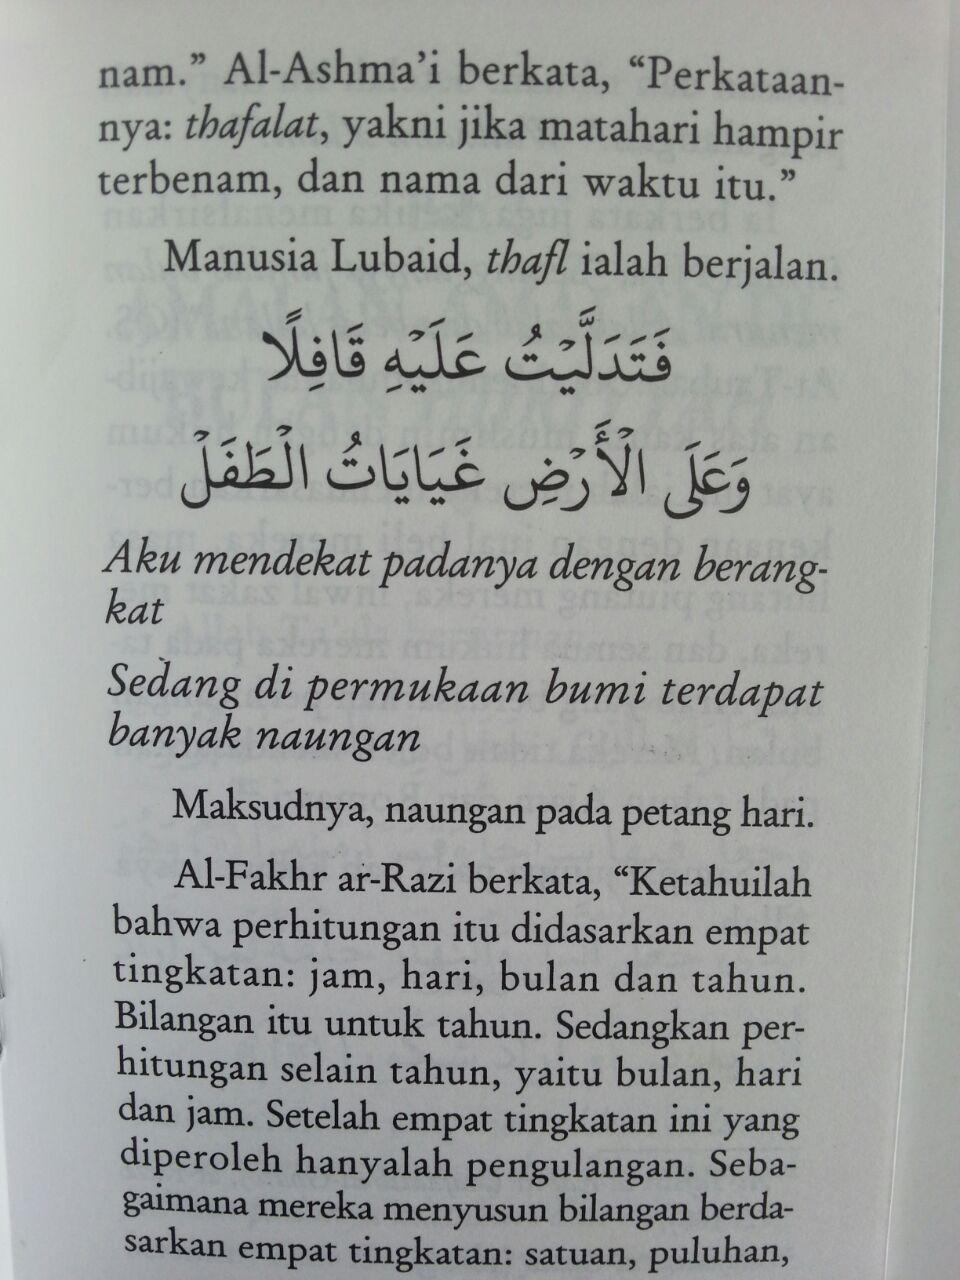 nam.” Al-Ashma’i berkata, “Perkataan-
nya: thafalat, yakni jika matahari hampir
terbenam, dan nama dari waktu itu.”
Manusia Lubaid, thafl ialah berjalan.
فَتَدَلَّيْتُ عَلَيْهِ قَافِلًا
وَعَلَى الْأَرْضِ غَيَايَاتُ الْطَفَلْ
Aku mendekat padanya dengan berang-
kat
Sedang di permukaan bumi terdapat
banyak naungan
Maksudnya, naungan pada petang hari.
Al-Fakhr ar-Razi berkata, “Ketahuilah
bahwa perhitungan itu didasarkan empat
tingkatan: jam, hari, bulan dan tahun.
Bilangan itu untuk tahun. Sedangkan per-
hitungan selain tahun, yaitu bulan, hari
dan jam. Setelah empat tingkatan ini yang
diperoleh hanyalah pengulangan. Seba-
gaimana mereka menyusun bilangan berda-
sarkan empat tingkatan: satuan, puluhan,